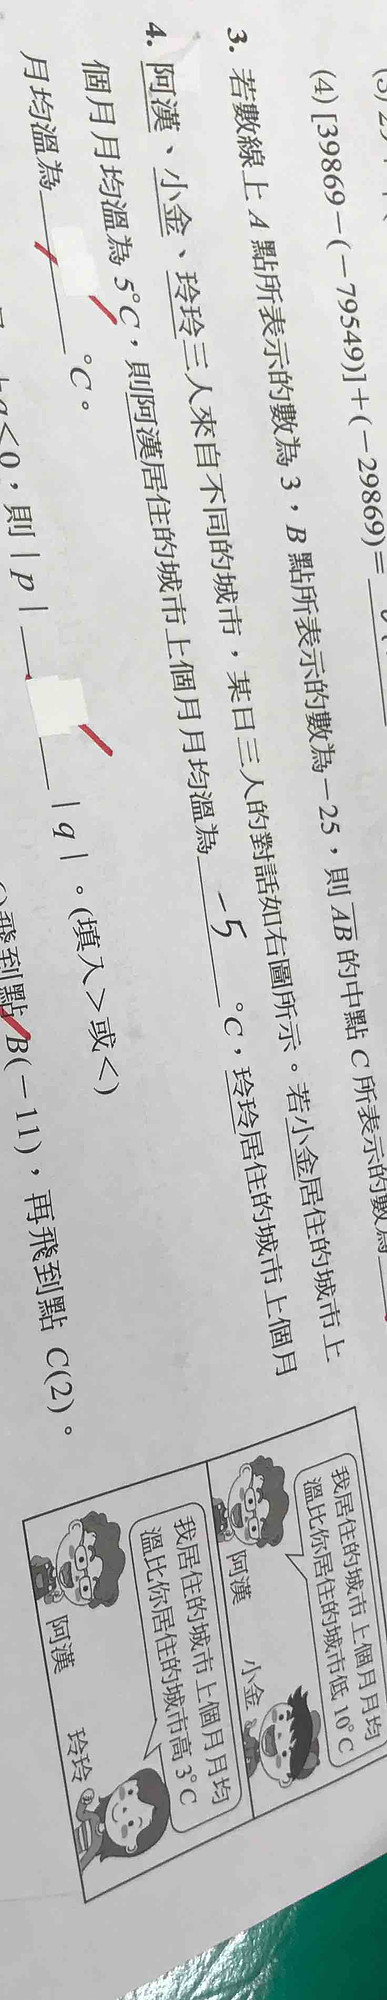 (4) [39869－(－79549)]＋(－29869)＝
3. 若數線上 A 點所表示的數為 3，B 點所表示的數為－25，則 AB 的中點 C 所表示的數為
4. 阿漢、小金、玲玲三人來自不同的城市，某日三人的對話如右圖所示。若小金居住的城市上
個月月均溫為 5°C，則阿漢居住的城市上個月月均溫為 -5 °C，玲玲居住的城市上個月
月均溫為 °C。
q<0，則 |p| |q|。(填入＞或＜)
飛到點 B(－11)，再飛到點 C(2)。
我居住的城市上個月月均
溫比你居住的城市低 10°C
阿漢
小金
我居住的城市上個月月均
溫比你居住的城市高 3°C
阿漢
玲玲